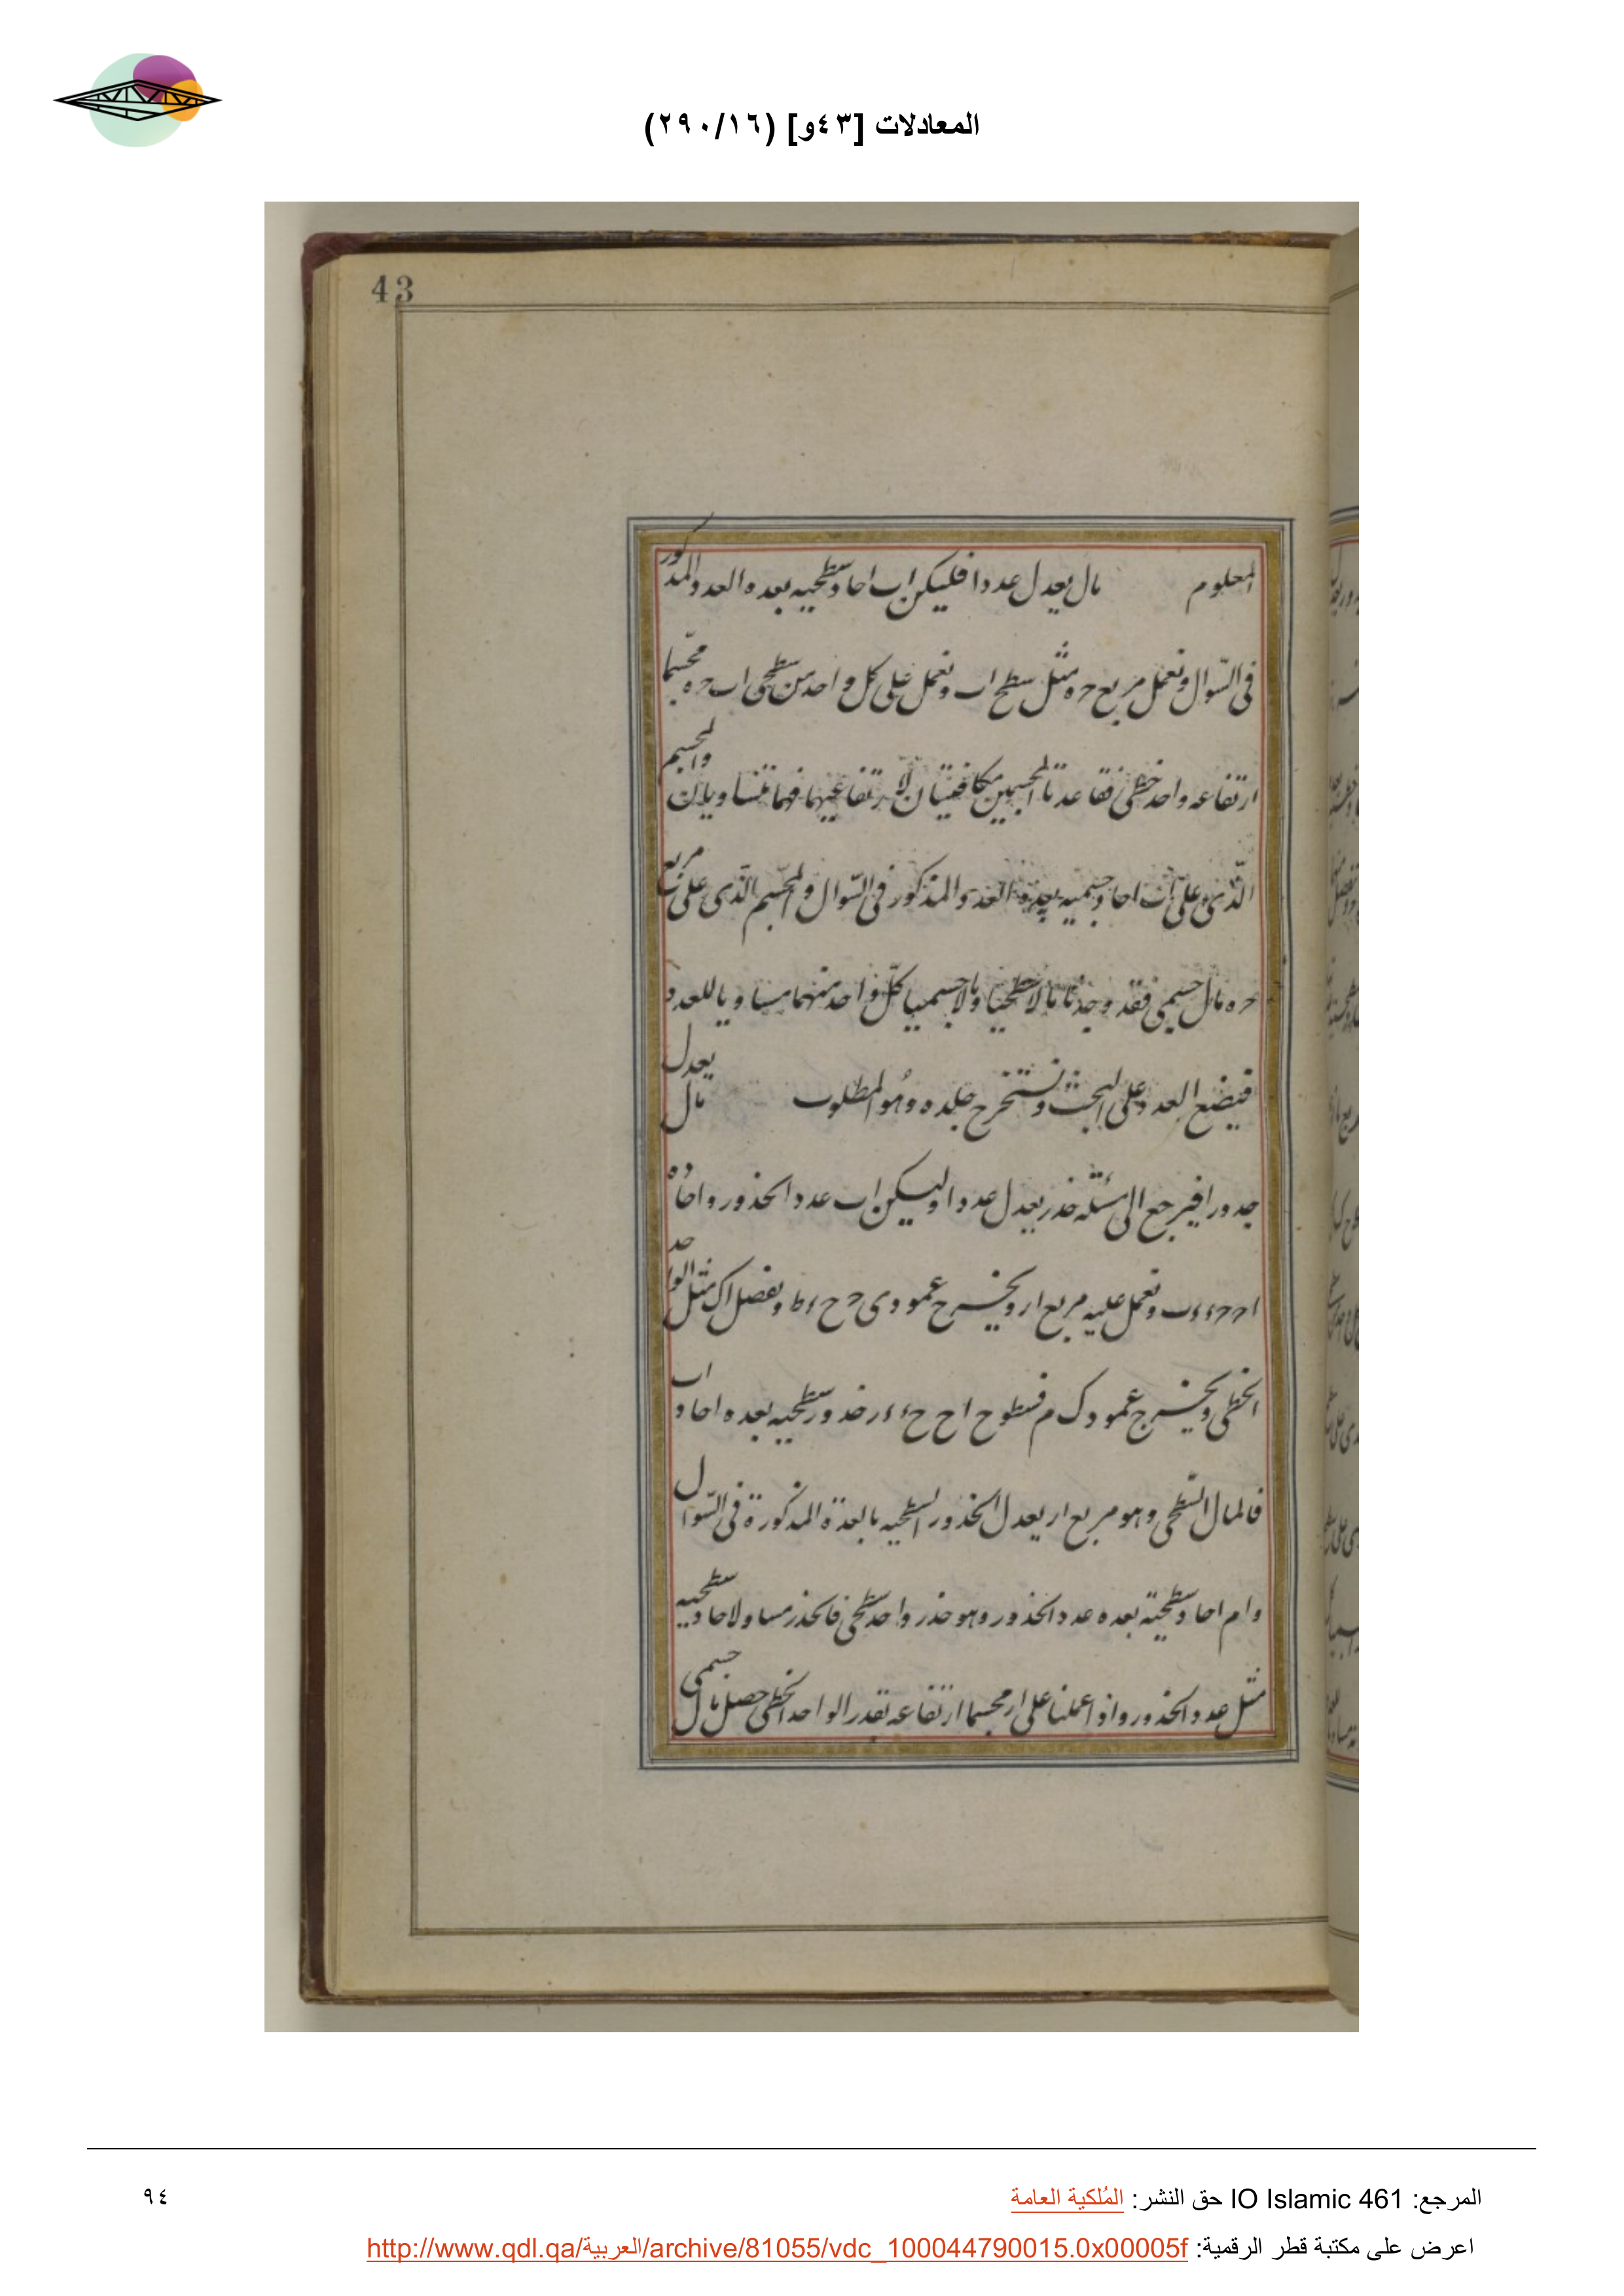 المعادلات [٤٣و] (٢٩٠/١٦)
43
المعلوم مال يعدل عددا فليكن اب احاد سطحيه بعده العدد المذكور
فى السّوال ونعمل مربع حه مثل سطح اب ونعمل على كل واحد من سطحى اب حه مجسّما
ارتفاعه واحد خطى فقاعدتا المجسمين مكافئتان لارتفاعيهما فهما متساويان والمجسم
الذى على اب احاد جسميه بعدة العدد المذكور فى السّوال والمجسّم الذى على مربع
حه مال جسمى فقد وجدنا مالا سطحيا ومالا جسميا كلّ واحد منهما مساويا للعدد
فيضع العدد على التخت ونستخرج جذره وهُو المطلوب مال يعدل
جذورا فيرجع الى مسئلة جذر يعدل عددا وليكن اب عدد الجذور واحاده
اح حء ءب ونعمل عليه مربع ار ويخرج عمودى ح ح ء ط ونفصل اك مثل الواحد
الخطى ويخرج عمود ك م فسطوح اح ح ء ء ر جذور سطحيه بعده احاد اب
فالمال السّطحى وهو مربع ار يعدل الجذور السطحيه بالعدة المذكورة فى السّوال
وام احاد سطحيّة بعده عدد الجذور وهو جذر واحد سطحى فالجذر مساو لاحاد سطحيه
مثل عدد الجذور واذا عملنا على ار مجسما ارتفاعه بقدر الواحد الخطى حصل مال جسمى
المرجع: IO Islamic 461 حق النشر: المُلكية العامة
٩٤
اعرض على مكتبة قطر الرقمية: http://www.qdl.qa/العربية/archive/81055/vdc_100044790015.0x00005f